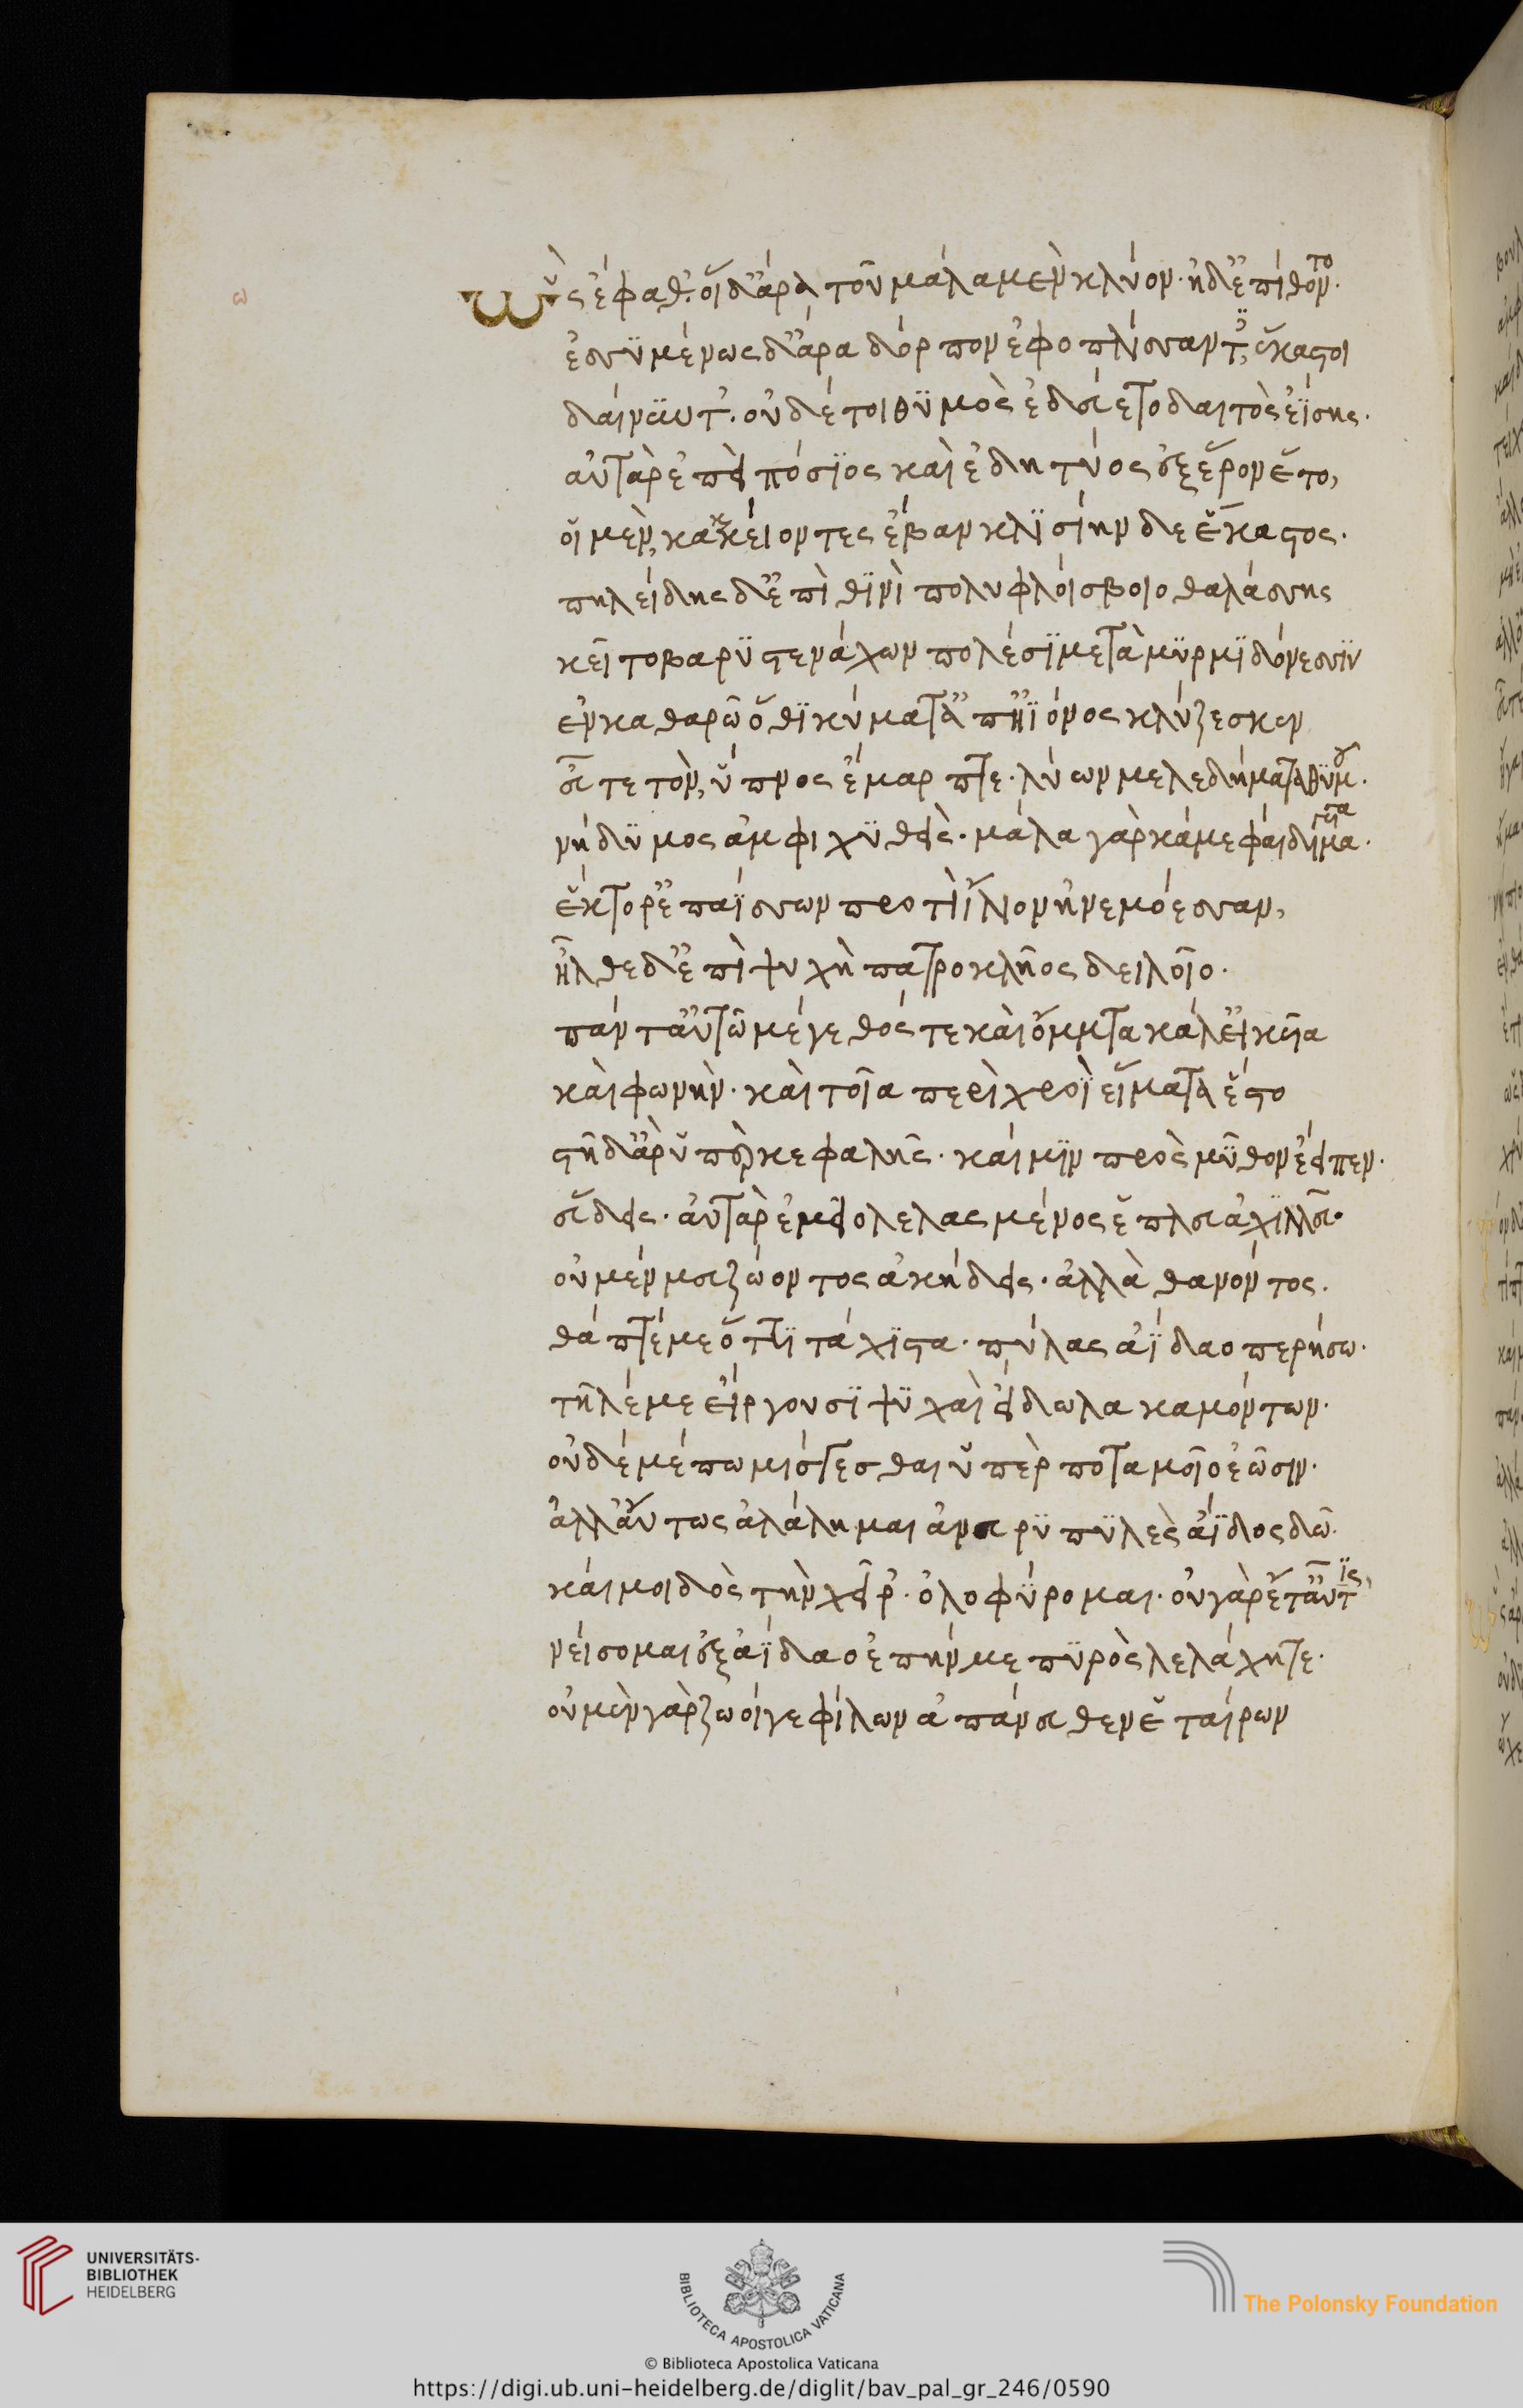 ω
Ὣς ἔφαθ'. οἳ δ' ἄρα τοῦ μάλα μὲν κλύον. ἠδ' ἐπίθοντο.
ἐσσυμένως δ' ἄρα δόρπον ἐφοπλίσσαντες, ἕκαστοι
δαίνυντ'. οὐδέ τοι θυμὸς ἐδεύετο δαιτὸς ἐΐσης.
αὐτὰρ ἐπεὶ πόσιος καὶ ἐδητύος ἐξ ἔρον ἕντο,
οἳ μὲν, κακκείοντες ἔβαν κλισίην δε ἕκαστος.
πηλείδης δ' ἐπὶ θινὶ πολυφλοίσβοιο θαλάσσης
κεῖτο βαρὺ στενάχων πολέσι μετὰ μυρμιδόνεσσιν
ἐν καθαρῷ ὅθι κύματα ἐπ' ἠϊόνος κλύζεσκεν
εὖτε τὸν, ὕπνος ἔμαρπτε. λύων μελεδήματα θυμοῦ.
νήδυμος ἀμφιχυθείς. μάλα γὰρ κάμε φαίδιμα γυῖα.
ἕκτορ' ἐπαΐσσων προτὶ ἴλιον ἠνεμόεσσαν,
ἦλθε δ' ἐπὶ ψυχὴ πατροκλῆος δειλοῖο.
πάντ' αὐτῷ μέγεθός τε καὶ ὄμματα κάλ' εἰκυῖα
καὶ φωνήν. καὶ τοῖα περὶ χροῒ εἵματα ἕστο
στῆ δ' ἄρ' ὑπὲρ κεφαλῆς. καί μιν πρὸς μῦθον ἔειπεν.
εὕδεις. αὐτὰρ ἐμεῖο λελασμένος ἔπλευ ἀχιλλεῦ.
οὐ μέν μευ ζώοντος ἀκήδεις. ἀλλὰ θανόντος.
θάπτέ με ὅττι τάχιστα. πύλας ἀΐδαο περήσω.
τῆλέ με εἴργουσι ψυχαὶ εἴδωλα καμόντων.
οὐδέ μέ πω μίσγεσθαι ὑπὲρ ποταμοῖο ἐῶσιν.
ἀλλ' αὔτως ἀλάλημαι ἀν' εὐρυπυλὲς ἄϊδος δῶ.
καί μοι δὸς τὴν χεῖρ'. ὀλοφύρομαι. οὐ γὰρ ἔτ' αὖτις
νείσομαι ἐξ ἀΐδαο ἐπήν με πυρὸς λελάχητε.
οὐ μὲν γὰρ ζωοί γε φίλων ἀπάνευθεν ἑταίρων
UNIVERSITÄTS-
BIBLIOTHEK
HEIDELBERG
BIBLIOTECA APOSTOLICA VATICANA
The Polonsky Foundation
© Biblioteca Apostolica Vaticana
https://digi.ub.uni-heidelberg.de/diglit/bav_pal_gr_246/0590